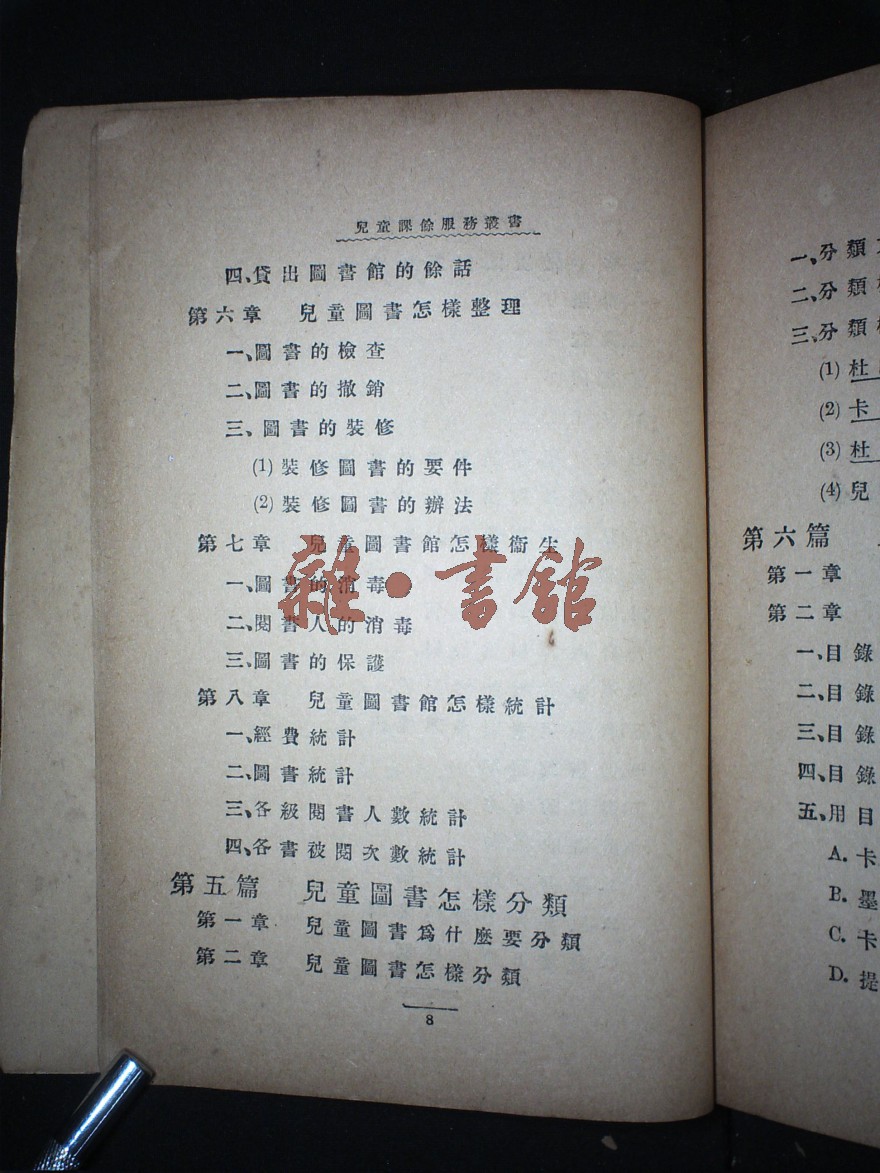 兒童課餘服務叢書
四、貸出圖書館的餘話
第六章 兒童圖書怎樣整理
一、圖書的檢查
二、圖書的撤銷
三、圖書的裝修
(1) 裝修圖書的要件
(2) 裝修圖書的辦法
第七章 兒童圖書館怎樣衞生
一、圖書的消毒
二、閱書人的消毒
三、圖書的保護
第八章 兒童圖書館怎樣統計
一、經費統計
二、圖書統計
三、各級閱書人數統計
四、各書被閱次數統計
第五篇 兒童圖書怎樣分類
第一章 兒童圖書爲什麼要分類
第二章 兒童圖書怎樣分類
8
雜·書館
一、分類
二、分類
三、分類
(1) 杜
(2) 卡
(3) 杜
(4) 兒
第六篇
第一章
第二章
一、目錄
二、目錄
三、目錄
四、目錄
五、用目
A. 卡
B. 墨
C. 卡
D. 提